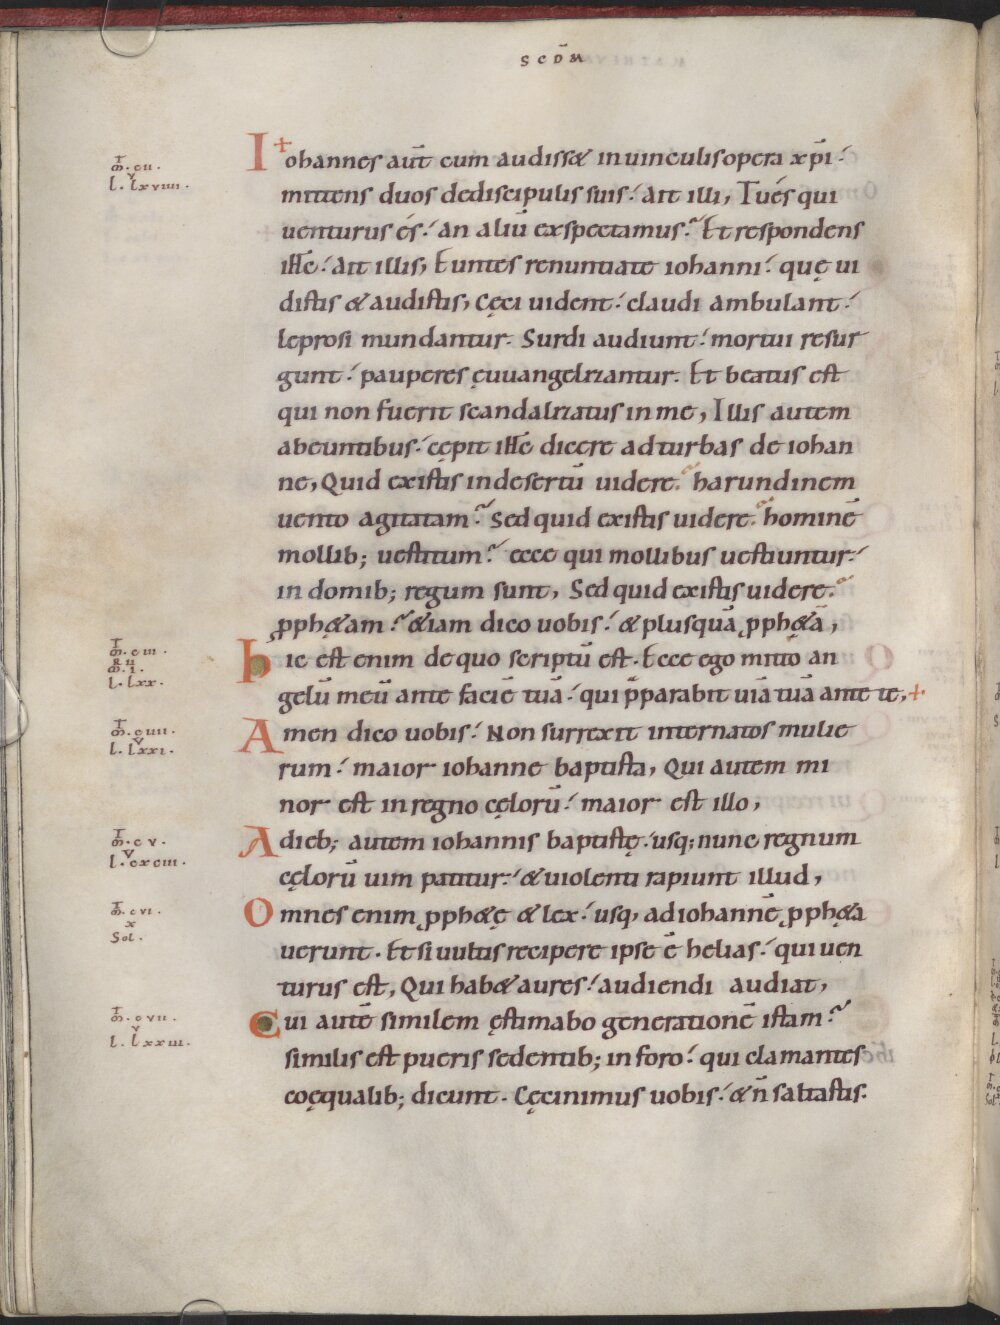 SCDM̄
Iohannes aut̄ cum audiss& inuinculisopera xp̄i·
mittens duos dediscipulis suis· ait illi, Tués qui
uenturus és· an aliū exspectamus? Et respondens
ihc̄· ait illis, Euntes renuntiate iohanni· quę ui
distis & audistis, Cęci uident· claudi ambulant·
leprosi mundantur. Surdi audiunt· mortui resur
gunt· pauperes ęuuangelizantur. Et beatus est
qui non fuerit scandalizatus in me, Illis autem
abeuntibus· cępit ihc̄ dicere adturbas de iohan
ne, Quid existis indesertū uidere? harundinem
uento agitatam? Sed quid existis uidere? hominē
mollib; uestitum? ecce qui mollibus uestiuntur·
in domib; regum sunt, Sed quid existis uidere?
ꝓph&am? &iam dico uobis· & plusquā ꝓph&ā,
Hic est enim de quo scriptū est. Ecce ego mitto an
gelū meū ante faciē tuā· qui p̄parabit uiā tuā ante te,
Amen dico uobis· Non surrexit internatos mulie
rum· maior iohanne baptista, Qui autem mi
nor est in regno cęlorū· maior est illo,
Adieb; autem iohannis baptistę· usq; nunc regnum
cęlorū uim patitur· & uiolenti rapiunt illud,
Omnes enim ꝓph&ę & lex· usq; adiohannē ꝓph&a
uerunt. Et si uultis recipere ipse ē helias· qui uen
turus est, Qui hab& aures· audiendi audiat,
Cui autē similem ęstimabo generationē istam?
similis est pueris sedentib; in foro· qui clamantes
coęqualib; dicunt. Cęcinimus uobis· & n̄ saltastis.
m̄t. cii.
v
l. lxviiii.
m̄t. ciii.
m̄r. i.
l. lxx.
m̄t. ciiii.
v
l. lxxi.
m̄t. cv.
v
l. cxciii.
m̄t. cvi.
x
Sol.
m̄t. cvii.
v
l. lxxiii.